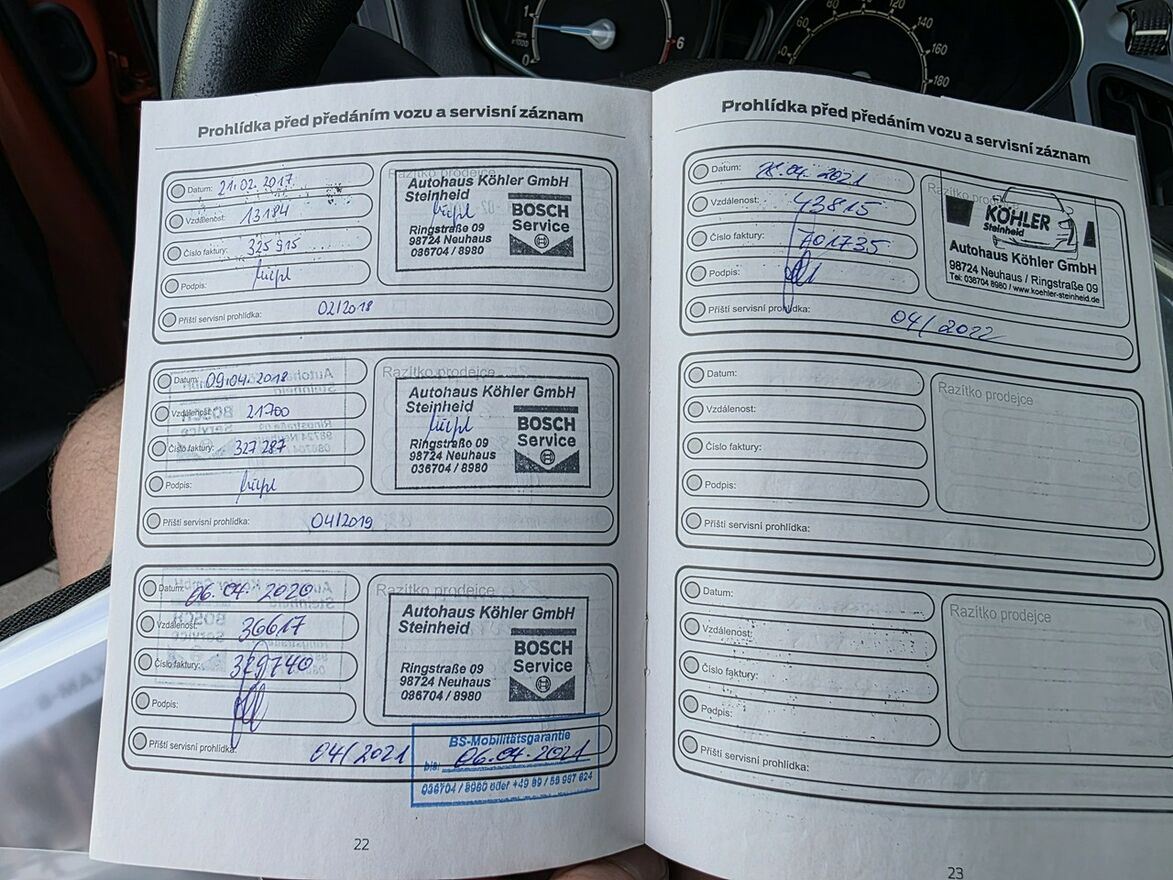 1
x1000
0
6
60
80
100
120
140
160
180
Prohlídka před předáním vozu a servisní záznam
Datum: 21.02.2017
Vzdálenost: 13184
Číslo faktury: 325 915
Podpis:
Příští servisní prohlídka: 02/2018
Razítko prodejce
Autohaus Köhler GmbH
Steinheid
Ringstraße 09
98724 Neuhaus
036704 / 8980
BOSCH
Service
Datum: 09.04.2018
Vzdálenost: 21700
Číslo faktury: 327 287
Podpis:
Příští servisní prohlídka: 04/2019
Razítko prodejce
Autohaus Köhler GmbH
Steinheid
Ringstraße 09
98724 Neuhaus
036704 / 8980
BOSCH
Service
Datum: 06.04.2020
Vzdálenost: 36617
Číslo faktury: 329740
Podpis:
Příští servisní prohlídka: 04/2021
Razítko prodejce
Autohaus Köhler GmbH
Steinheid
Ringstraße 09
98724 Neuhaus
036704 / 8980
BOSCH
Service
BS-Mobilitätsgarantie
bis: 06.04.2021
036704 / 8980 oder +49 89 / 55 987 624
22
Prohlídka před předáním vozu a servisní záznam
Datum: 28.04.2021
Vzdálenost: 43815
Číslo faktury: 701735
Podpis:
Příští servisní prohlídka: 04/2022
Razítko prodejce
KÖHLER
Steinheid
Autohaus Köhler GmbH
98724 Neuhaus / Ringstraße 09
Tel: 036704 8980 / www.koehler-steinheid.de
Datum:
Vzdálenost:
Číslo faktury:
Podpis:
Příští servisní prohlídka:
Razítko prodejce
Datum:
Vzdálenost:
Číslo faktury:
Podpis:
Příští servisní prohlídka:
Razítko prodejce
23